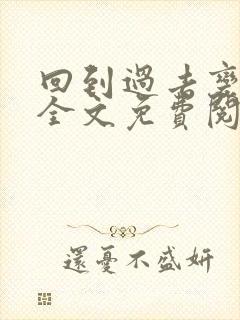 回到過去變
全文免費閱
還憂不盛妍